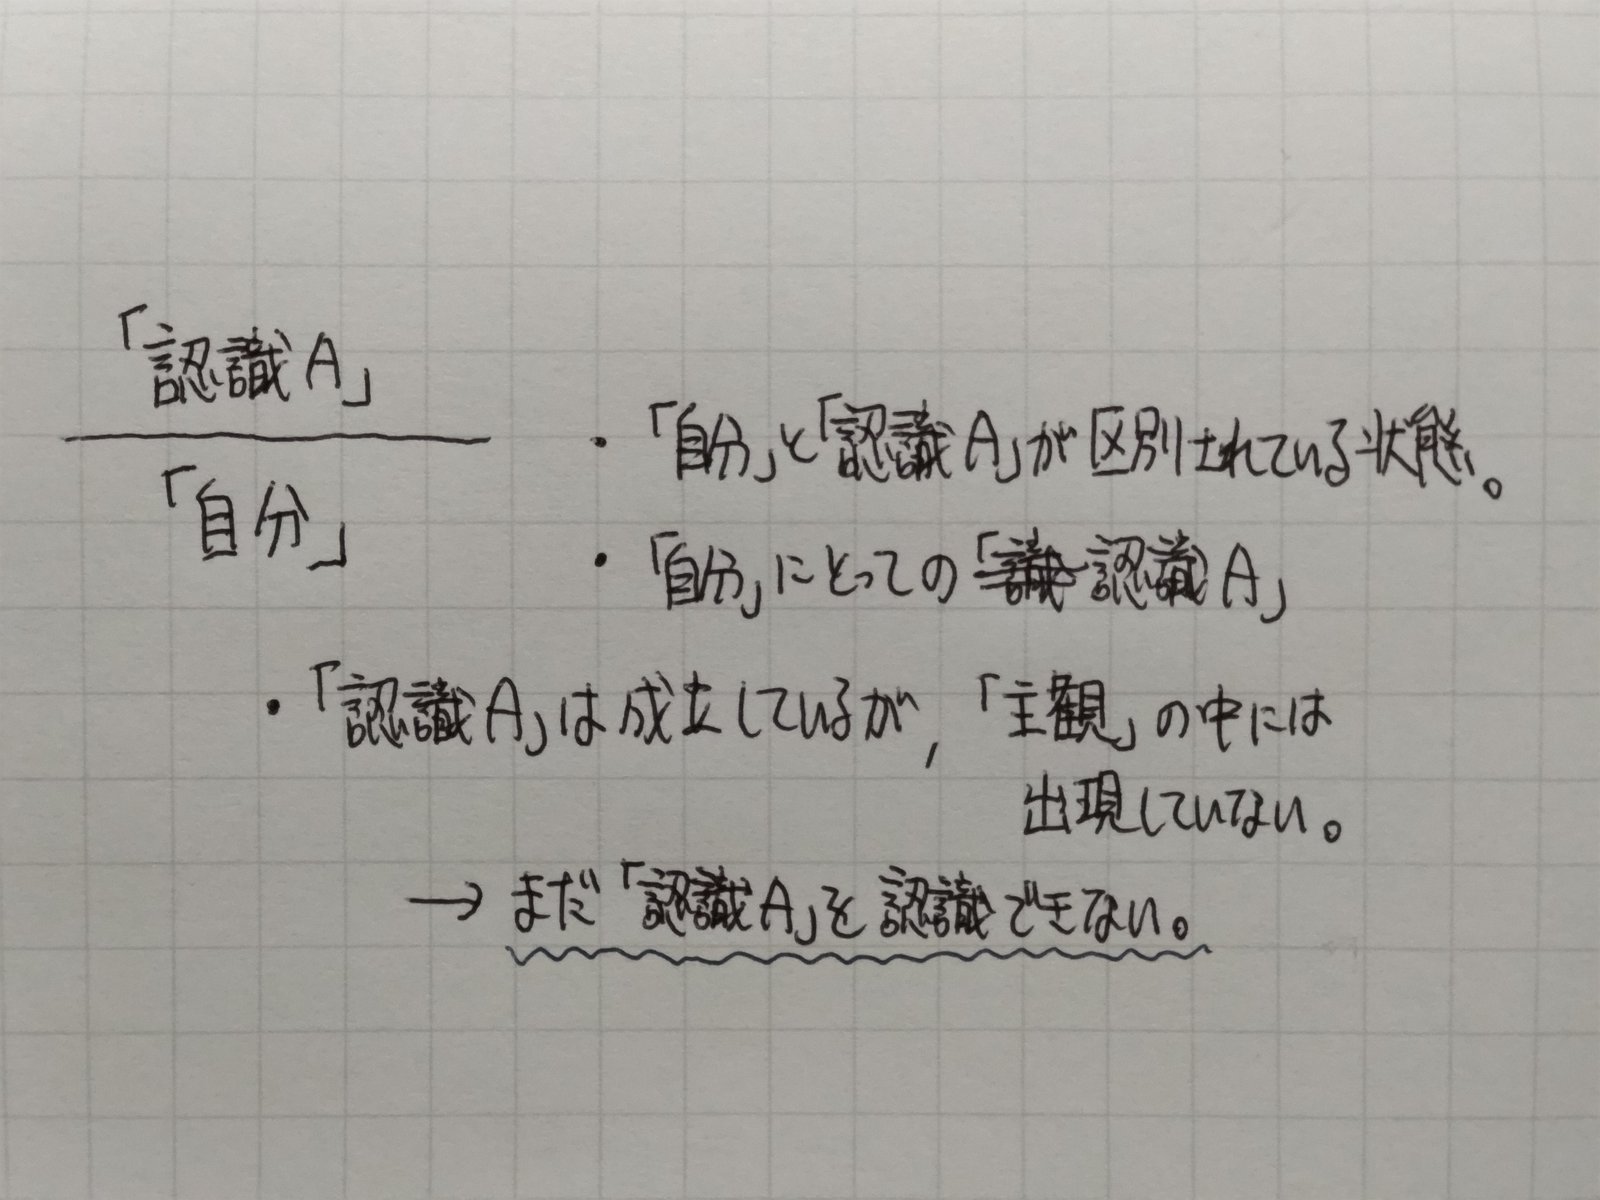 「認識A」
「自分」
・「自分」と「認識A」が区別されている状態。
・「自分」にとっての「認識A」
・「認識A」は成立しているが,「主観」の中には
出現していない。
→まだ「認識A」を認識できない。